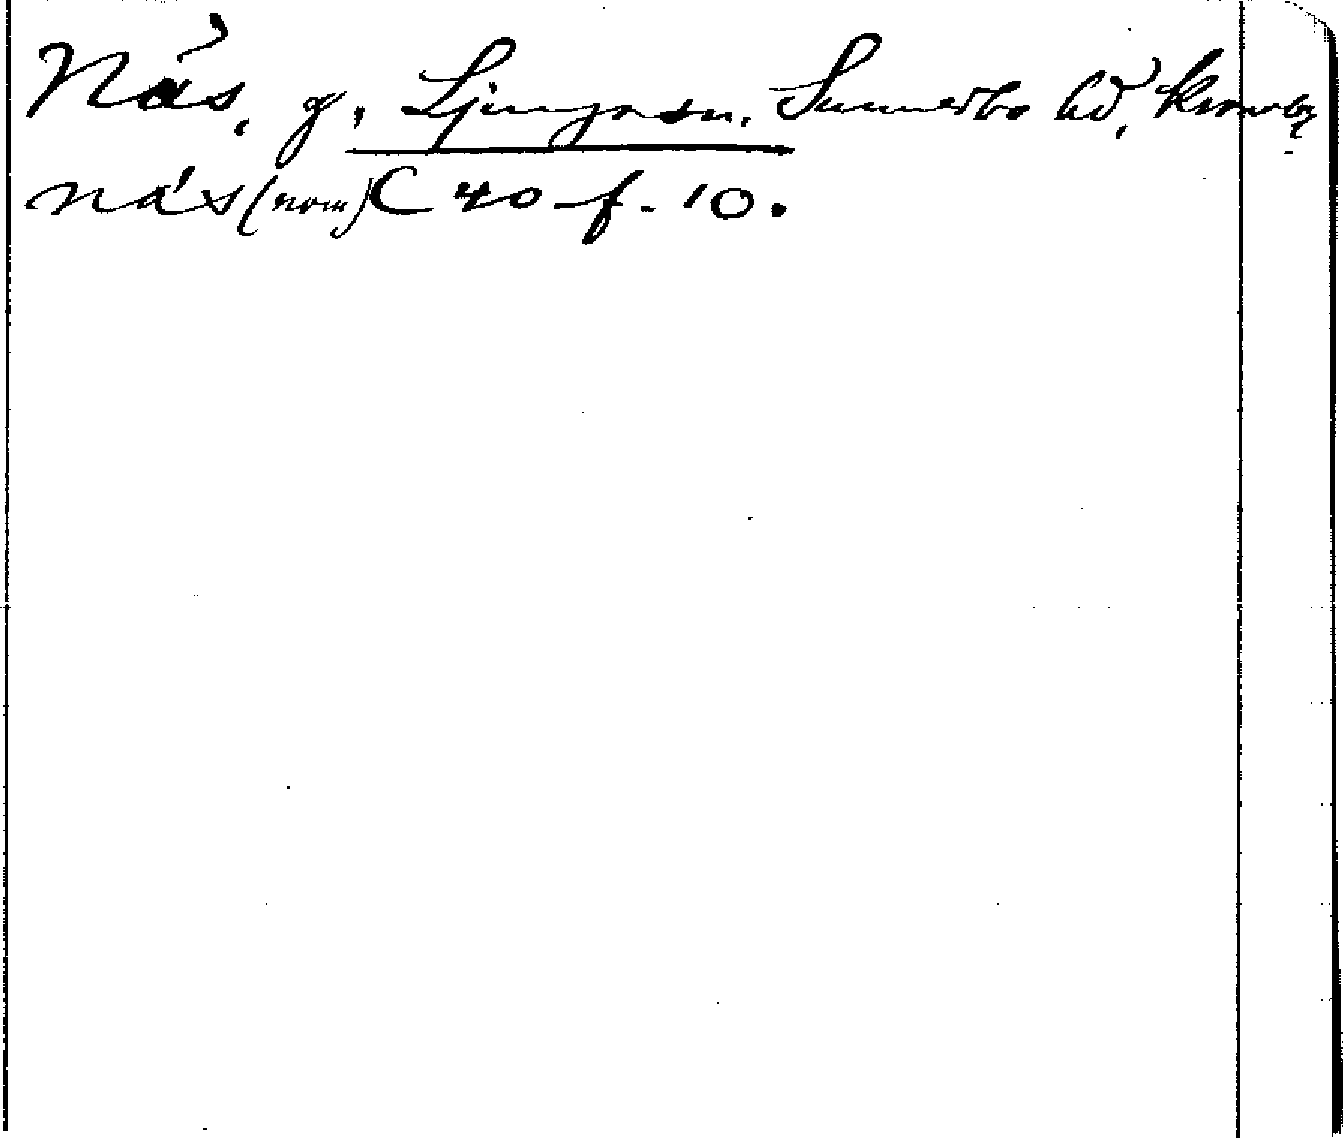 Näs, g, Ljunga sn. Sunnerbo hd, Kronobg
näs (nom) C 40 f. 10.